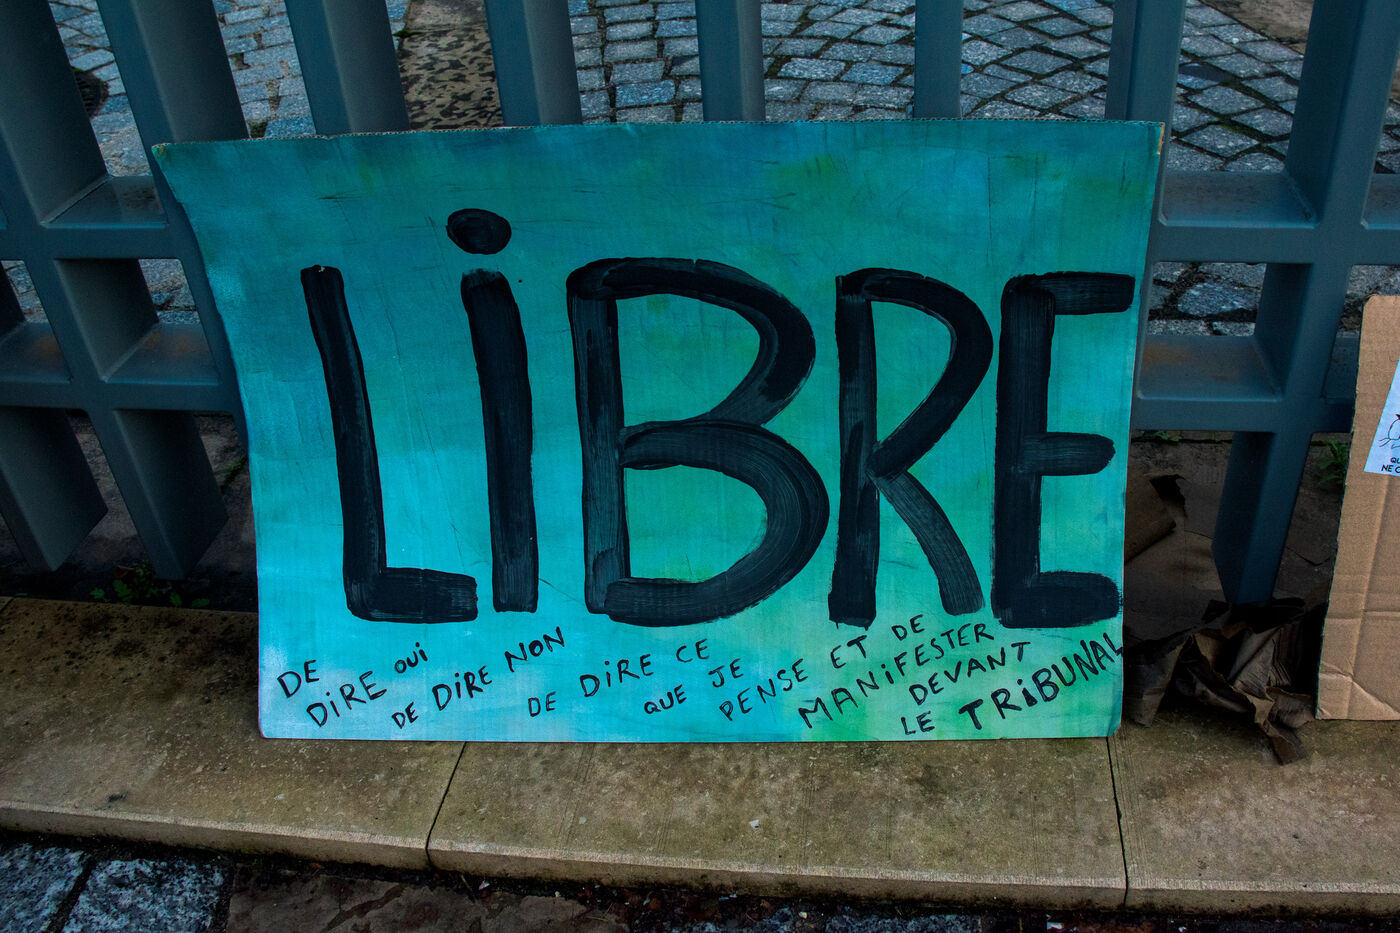 LiBRE
DE
DiRE oui
DE DiRE NON
DE DiRE CE
QUE JE
PENSE ET DE
MANiFESTER
DEVANT
LE TRiBUNAL